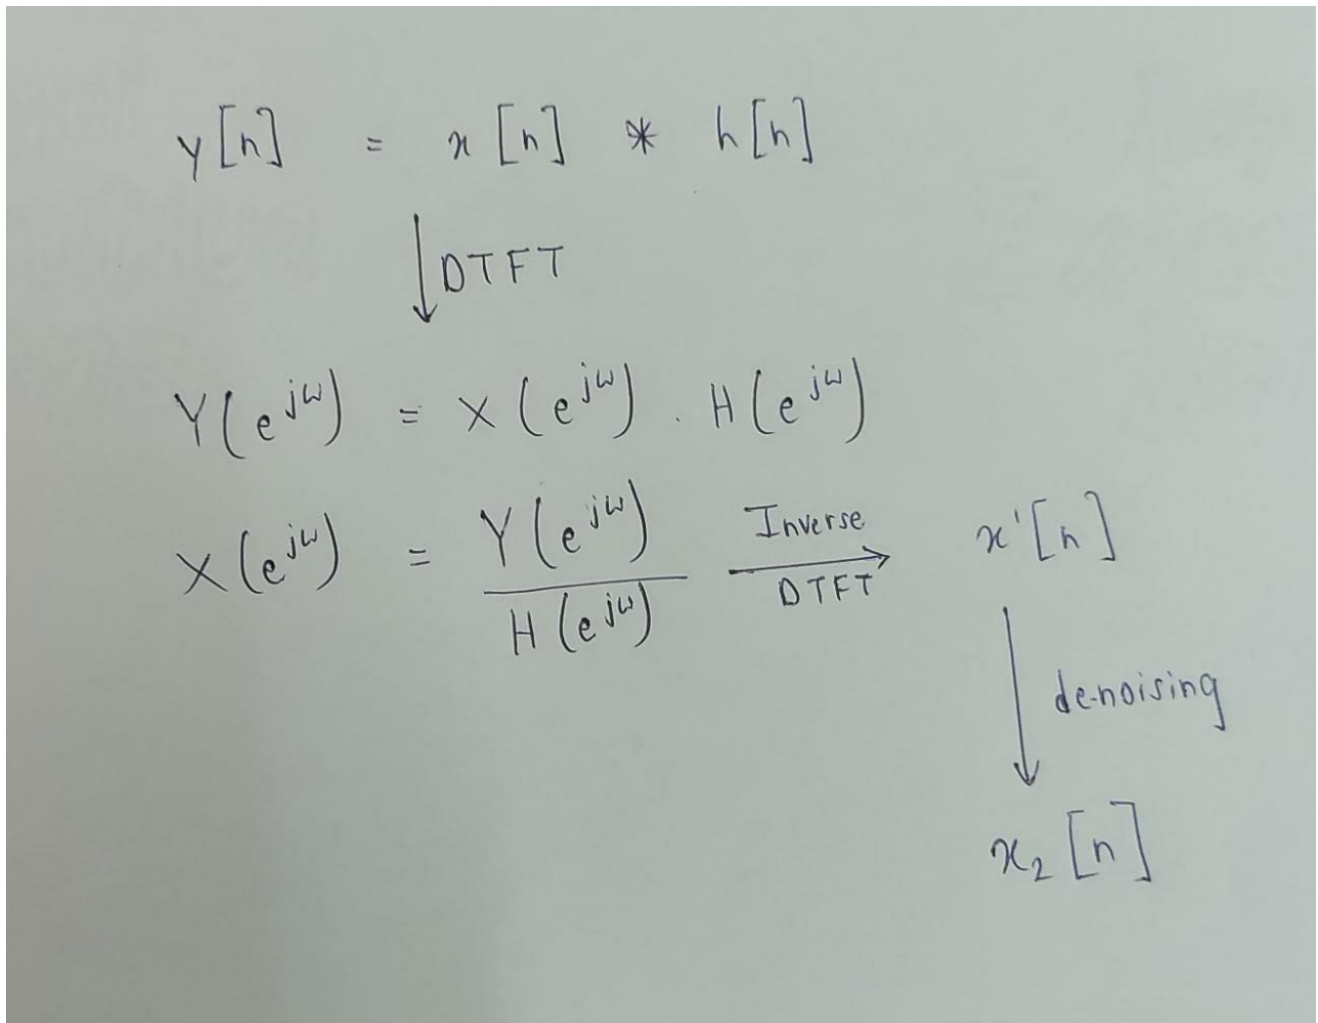 y[n] = x[n] * h[n]
↓ DTFT
Y(e^{jω}) = X(e^{jω}) . H(e^{jω})
X(e^{jω}) = Y(e^{jω}) / H(e^{jω}) Inverse DTFT → x'[n]
↓ de-noising
x₂[n]